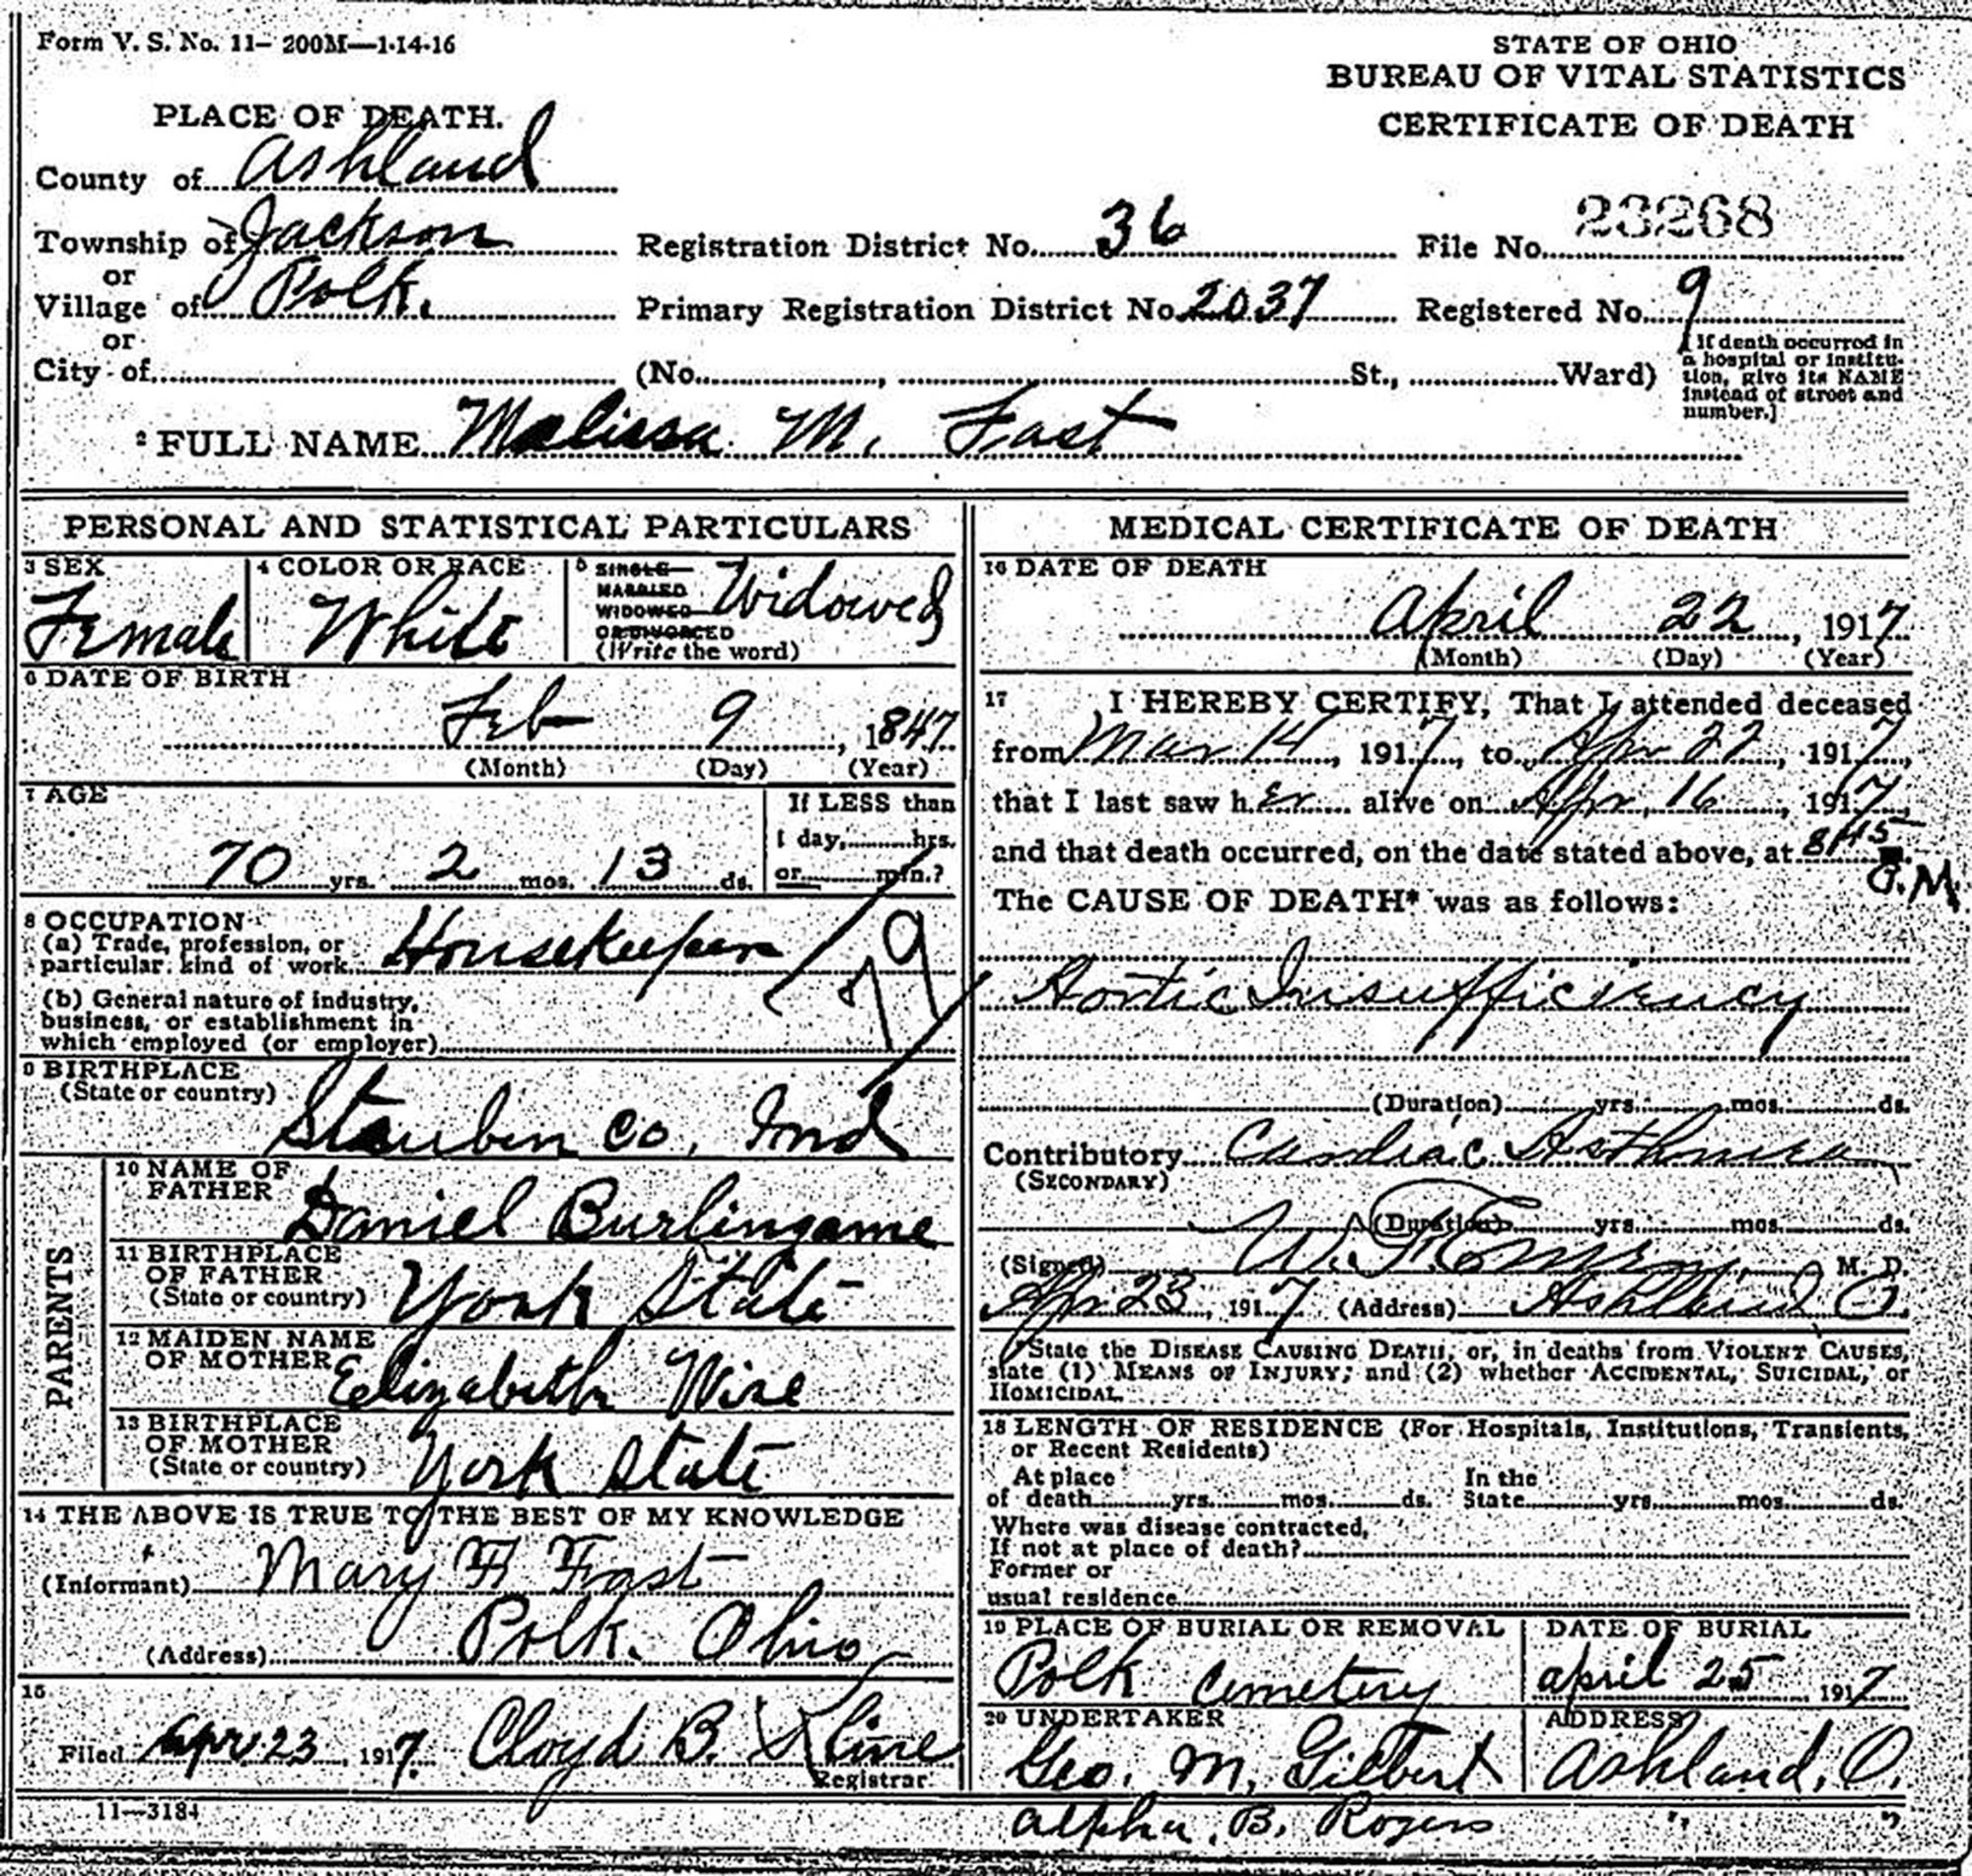 Form V. S. No. 11- 200M—1-14-16
STATE OF OHIO
BUREAU OF VITAL STATISTICS
CERTIFICATE OF DEATH
PLACE OF DEATH.
County of Ashland
Township of Jackson Registration District No. 36 File No. 23268
or
Village of Polk. Primary Registration District No. 2037 Registered No. 9
or
City of (No. , St., Ward)
[If death occurred in
a hospital or institu-
tion, give its NAME
instead of street and
number.]
2 FULL NAME Malissa M. Fast
PERSONAL AND STATISTICAL PARTICULARS
3 SEX
Female
4 COLOR OR RACE
White
5 SINGLE
MARRIED
WIDOWED
OR DIVORCED
(Write the word)
Widowed
6 DATE OF BIRTH
Feb 9, 1847
(Month) (Day) (Year)
7 AGE
70 yrs. 2 mos. 13 ds.
If LESS than
1 day, hrs.
or min.?
8 OCCUPATION
(a) Trade, profession, or
particular kind of work Housekeeper
79
(b) General nature of industry,
business, or establishment in
which employed (or employer)
9 BIRTHPLACE
(State or country)
Stauben Co, Ind
PARENTS
10 NAME OF
FATHER
Daniel Burlingame
11 BIRTHPLACE
OF FATHER
(State or country) York State
12 MAIDEN NAME
OF MOTHER
Elizabeth Wire
13 BIRTHPLACE
OF MOTHER
(State or country) York State
14 THE ABOVE IS TRUE TO THE BEST OF MY KNOWLEDGE
(Informant) Mary F Fast
(Address) Polk. Ohio
15
Filed Apr 23, 1917. Cloyd B. Kline
Registrar
11—3184
MEDICAL CERTIFICATE OF DEATH
16 DATE OF DEATH
April 22, 1917
(Month) (Day) (Year)
17 I HEREBY CERTIFY, That I attended deceased
from Mar 14, 1917, to Apr 22, 1917,
that I last saw her alive on Apr. 16, 1917,
and that death occurred, on the date stated above, at 845
M.
The CAUSE OF DEATH* was as follows:
Aortic Insufficiency
(Duration) yrs. mos. ds.
Contributory Cardiac Asthma
(SECONDARY)
(Duration) yrs. mos. ds.
(Signed) W. M. D.
Apr 23, 1917 (Address) Ashland O.
*State the DISEASE CAUSING DEATH, or, in deaths from VIOLENT CAUSES,
state (1) MEANS OF INJURY; and (2) whether ACCIDENTAL, SUICIDAL, or
HOMICIDAL.
18 LENGTH OF RESIDENCE (For Hospitals, Institutions, Transients,
or Recent Residents)
At place In the
of death yrs. mos. ds. State yrs. mos. ds.
Where was disease contracted,
If not at place of death?
Former or
usual residence
19 PLACE OF BURIAL OR REMOVAL
Polk Cemetery
DATE OF BURIAL
April 25 1917
20 UNDERTAKER
Geo. M. Gilbert
Alpha. B. Rogers
ADDRESS
Ashland, O.
" "